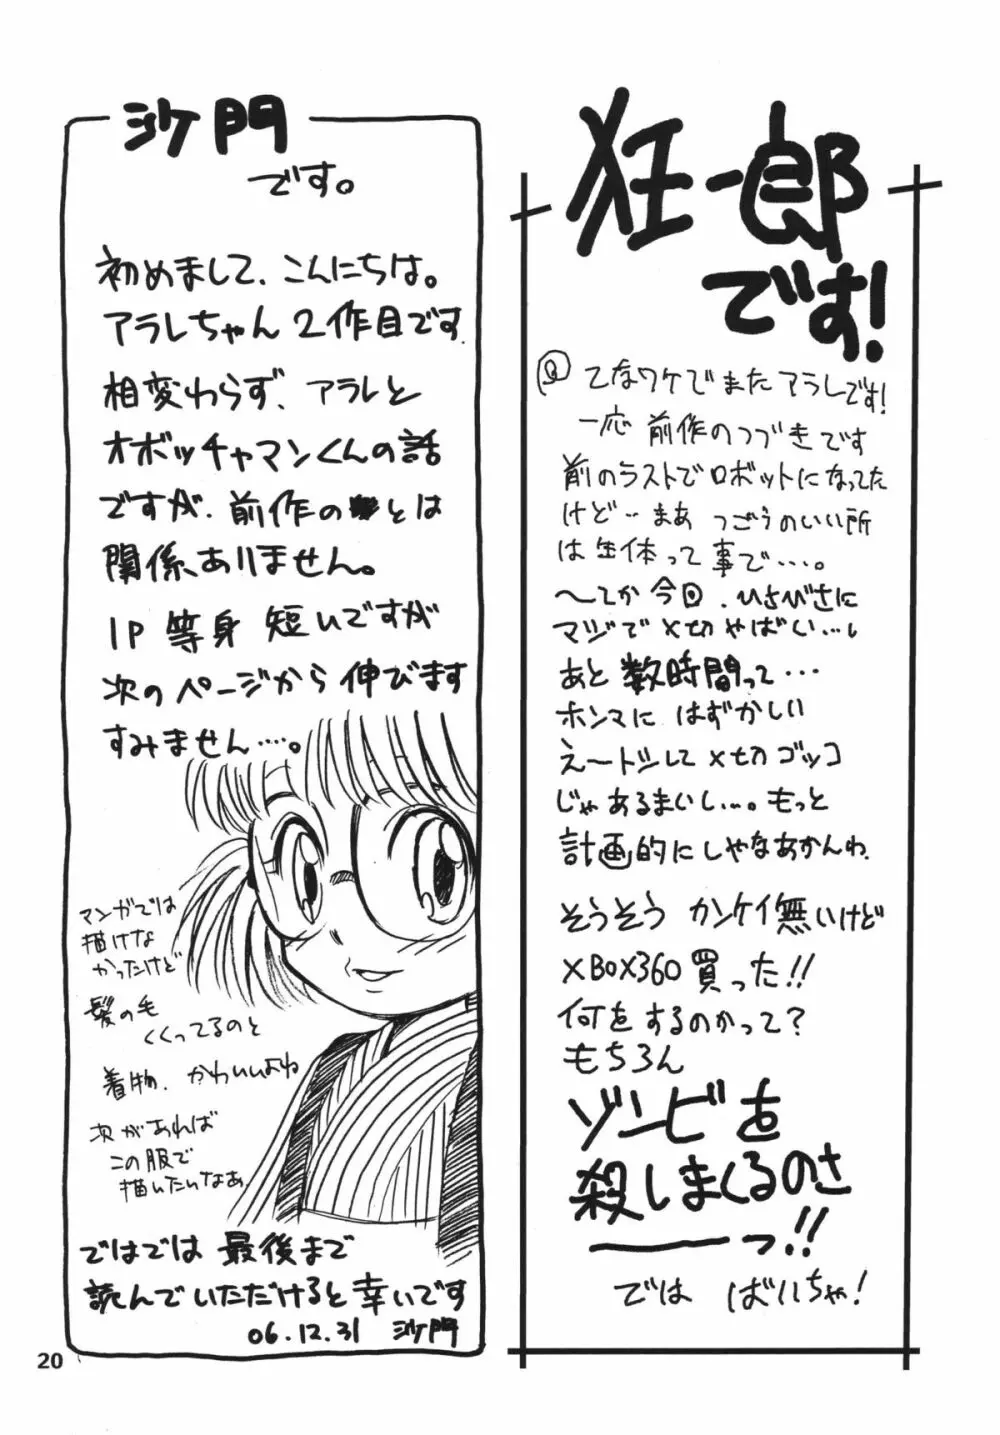 狂一郎
です!
てなワケでまたアラレです!
一応 前作のつづきです
前のラストでロボットになってた
けど‥まあ つごうのいい所
は生体って事で‥‥。
〜てか今回、ひさびさに
マジで〆切やばく‥‥
あと数時間って‥‥
ホンマに はずかしい
え〜トシして〆切ゴッコ
じゃあるまいし‥‥。もっと
計画的にしやなあかんわ
そうそう カンケイ無いけど
XBOX360買った!!
何をするのかって?
もちろん
ゾンビを
殺しまくるのさ
――っ!!
では ばいちゃ!
沙門
です。
初めまして、こんにちは。
アラレちゃん2作目です。
相変わらず、アラレと
オボッチャマンくんの話
ですが、前作のとは
関係ありません。
1P 等身 短いですが
次のページから伸びます
すみません‥‥。
マンガでは
描けな
かったけど
髪の毛
くくってるのと
着物、かわいいよね
次があれば
この服で
描いたいなあ
ではでは 最後まで
読んでいただけると幸いです
06.12.31 沙門
20